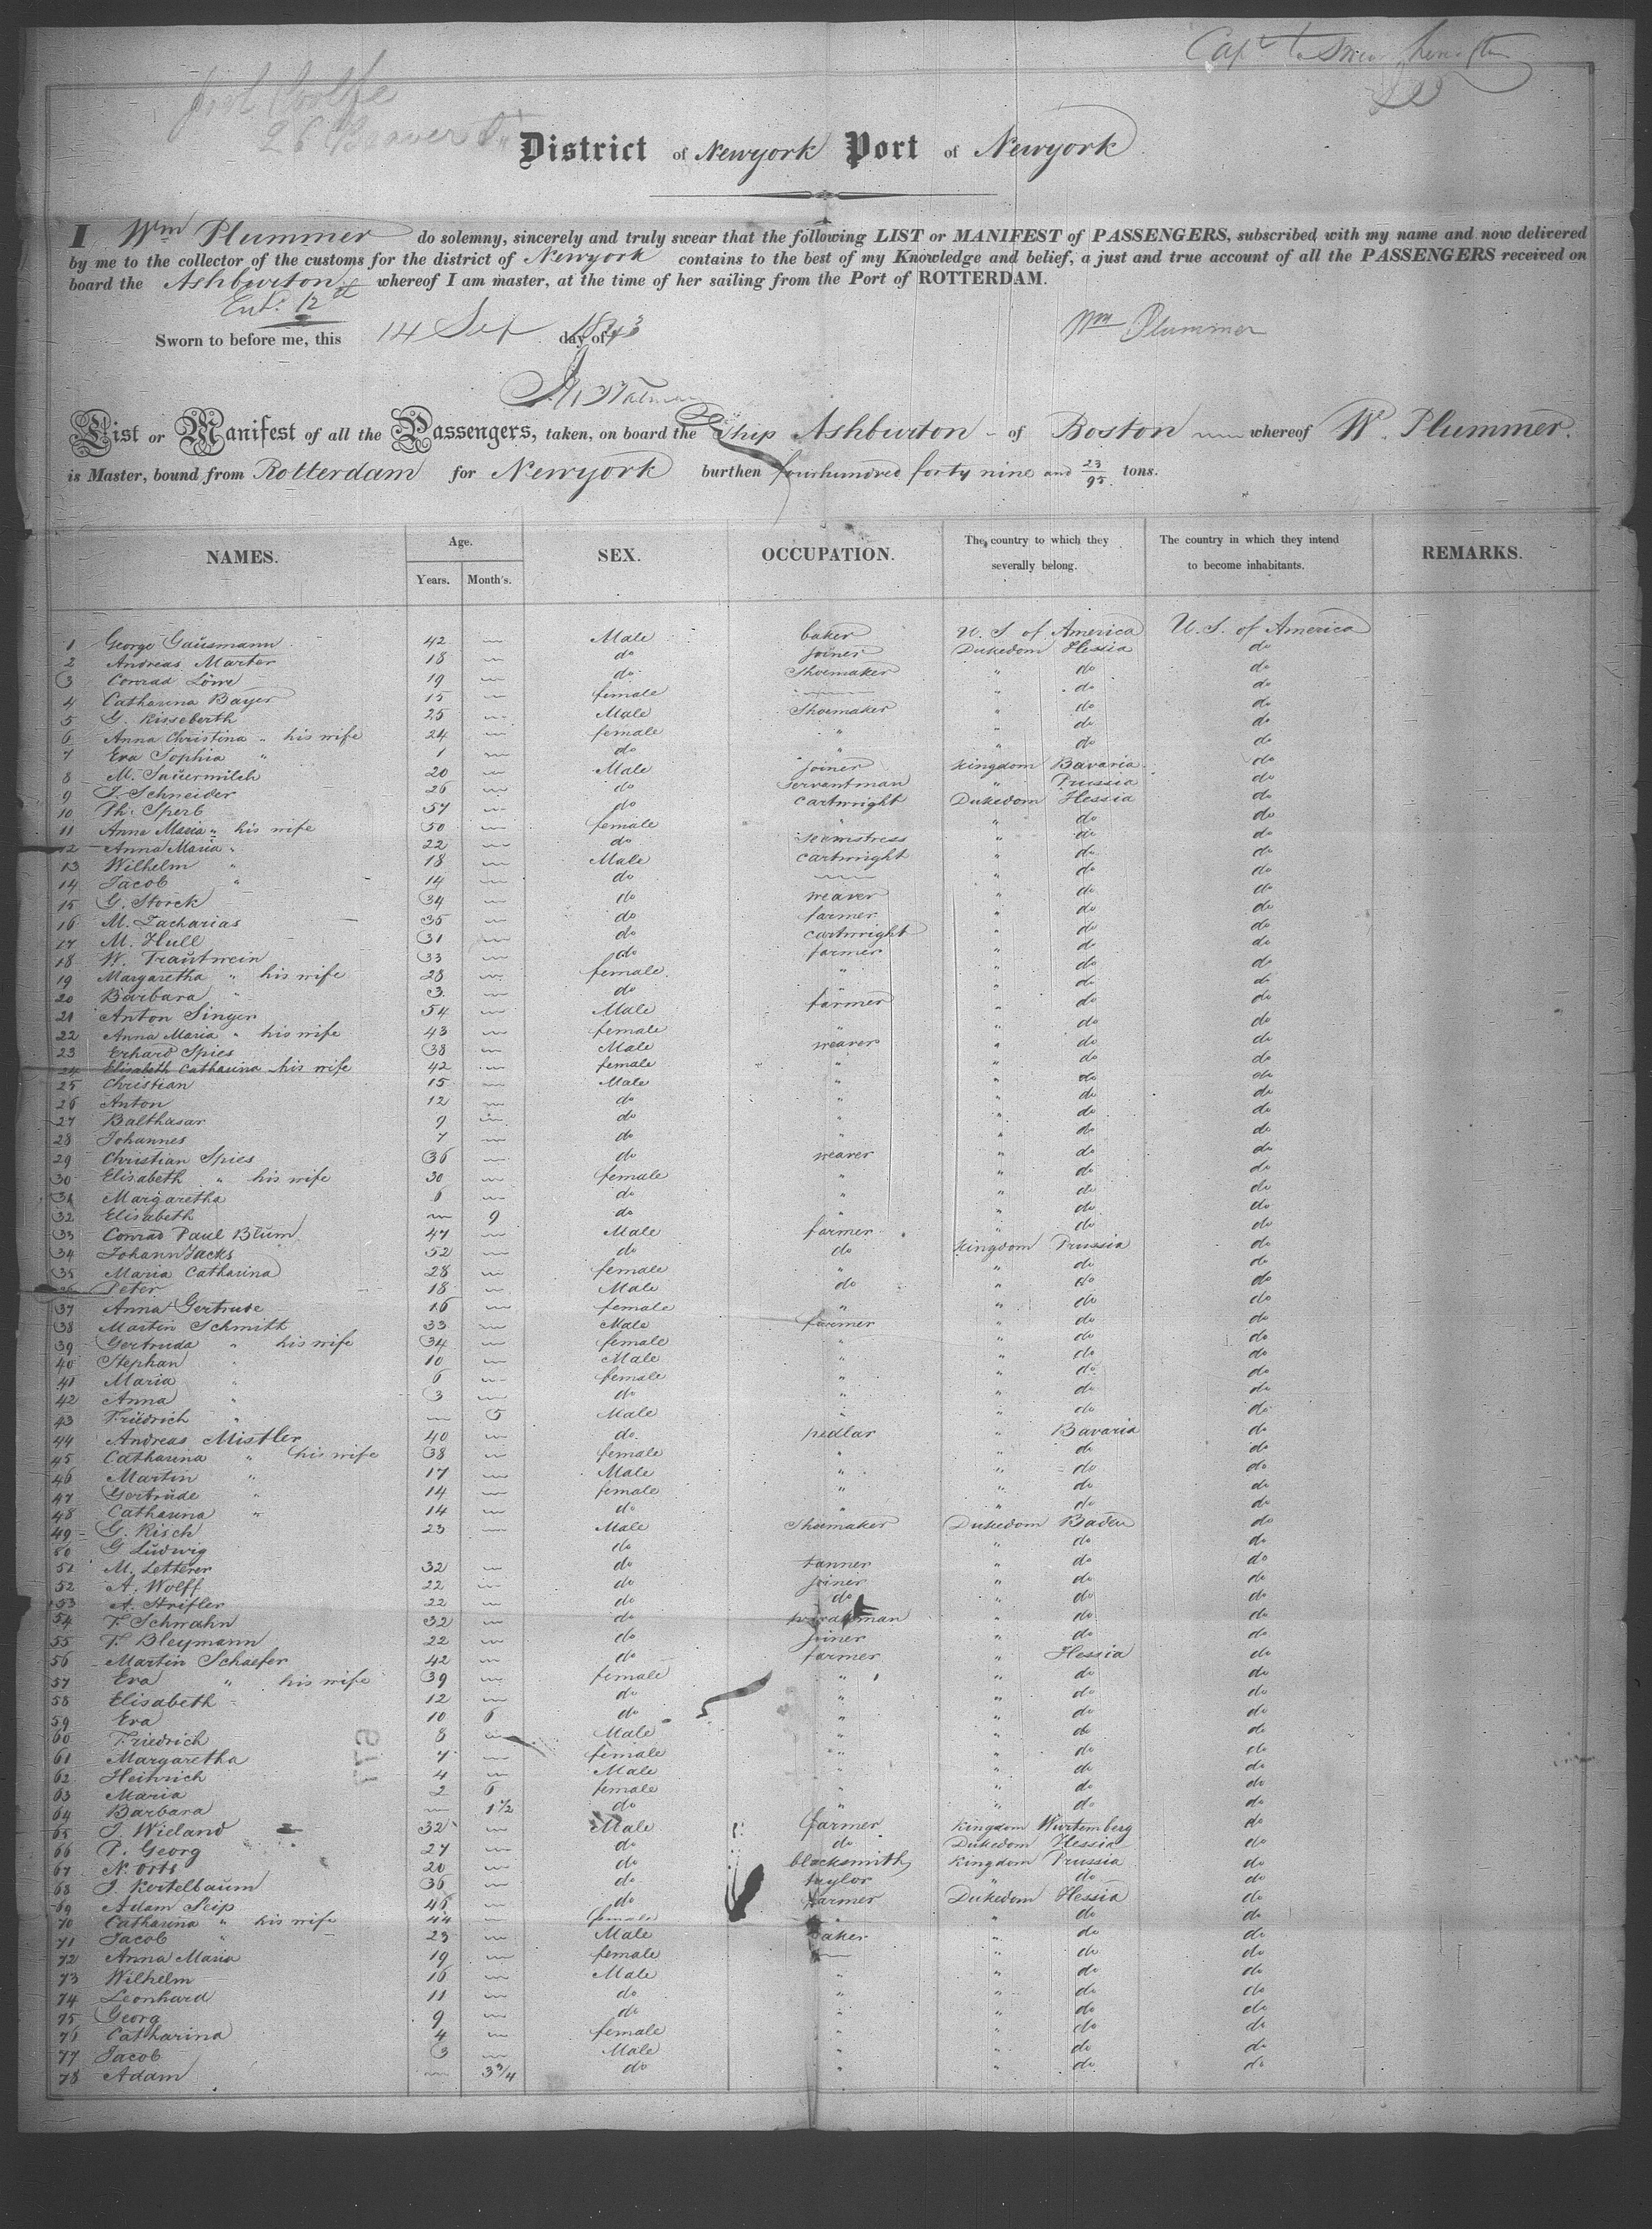 Capt to
26 Beaver St
District of Newyork Port of Newyork
I Wm Plummer do solemny, sincerely and truly swear that the following LIST or MANIFEST of PASSENGERS, subscribed with my name and now delivered
by me to the collector of the customs for the district of Newyork contains to the best of my Knowledge and belief, a just and true account of all the PASSENGERS received on
board the Ashburton whereof I am master, at the time of her sailing from the Port of ROTTERDAM.
Ent. 12th
Sworn to before me, this 14 Sep day of 1843 Wm Plummer
List or Manifest of all the Passengers, taken, on board the Ship Ashburton of Boston whereof W. Plummer.
is Master, bound from Rotterdam for Newyork burthen fourhundred forty nine and 23/95 tons.
NAMES. Age. Years. Month's. SEX. OCCUPATION. The country to which they severally belong. The country in which they intend to become inhabitants. REMARKS.
1 George Gaŭsmann 42 Male baker U. S. of America U. S. of America
2 Andreas Marter 18 do joiner Dukedom Hessia do
3 Conrad Löwe 19 do Shoemaker " do do
4 Catharina Bayer 15 female " do do
5 G. Risseberth 25 Male Shoemaker " do do
6 Anna Christina " his wife 24 female " " do do
7 Eva Sophia " 1 do " " do do
8 M. Saŭermilch 20 Male joiner Kingdom Bavaria do
9 J. Schneider 26 do Servantman " Prussia do
10 Ph: Sperb 57 do cartwright Dukedom Hessia do
11 Anna Maria " his wife 50 female " " do do
12 Anna Maria " 22 do seemstress " do do
13 Wilhelm " 18 Male cartwright " do do
14 Jacob " 14 do " do do
15 G. Storck 34 do weaver " do do
16 M. Zacharias 35 do farmer " do do
17 M. Hull 31 do cartwright " do do
18 W. Traŭtwein 33 do farmer " do do
19 Margaretha " his wife 28 female " " do do
20 Barbara " 3 do " " do do
21 Anton Singer 54 Male farmer " do do
22 Anna Maria " his wife 43 female " " do do
23 Erhard Spies 38 Male weaver " do do
24 Elisabeth Catharina his wife 42 female " " do do
25 Christian 15 Male " " do do
26 Anton 12 do " " do do
27 Balthasar 9 do " " do do
28 Johannes 7 do " " do do
29 Christian Spies 36 do weaver " do do
30 Elisabeth " his wife 30 female " " do do
31 Margaretha 6 do " " do do
32 Elisabeth 9 do " " do do
33 Conrad Paul Blŭm 47 Male farmer " do do
34 Johann Jacks 52 do do Kingdom Prussia do
35 Maria Catharina 28 female " " do do
36 Peter 18 Male do " do do
37 Anna Gertrude 16 female " " do do
38 Martin Schmitt 33 Male farmer " do do
39 Gertruda " his wife 34 female " " do do
40 Stephan " 10 Male " " do do
41 Maria " 6 female " " do do
42 Anna " 3 do " " do do
43 Friedrich " 5 Male " " do do
44 Andreas Mistler 40 do. pedlar " Bavaria do
45 Catharina " his wife 38 female " " do do
46 Martin " 17 Male " " do do
47 Gertrŭde " 14 female " " do do
48 Catharina " 14 do " " do do
49 G. Risch 23 Male Shumaker Dukedom Baden do
50 G Lŭdwig do " do do
51 M. Letterer 32 do tanner " do do
52 A. Wolff 22 do joiner " do do
53 A. Strifler 22 do do " do do
54 F. Schwahn 32 do " do do
55 F. Bleymann 22 do joiner " do do
56 Martin Schaefer 42 do farmer " Hessia do
57 Eva " his wife 39 female " " do do
58 Elisabeth 12 do " " do do
59 Eva 10 6 do " " do do
60 Friedrich 8 Male " " do do
61 Margaretha 7 female " " do do
62 Heinrich 4 Male " " do do
63 Maria 2 6 female " " do do
64 Barbara 1 1/2 do " " do do
65 J. Wieland 32 Male farmer Kingdom Wurtemberg do
66 P. Georg 27 do do Dukedom Hessia do
67 N. Orts 20 do blacksmith Kingdom Prussia do
68 J. Kertelbaŭm 36 do taylor " do do
69 Adam Seip 46 do farmer Dukedom Hessia do
70 Catharina " his wife 44 female " " do do
71 Jacob " 23 Male baker " do do
72 Anna Maria 19 female " do do
73 Wilhelm 16 Male " " do do
74 Leonhard 11 do " " do do
75 Georg 9 do " " do do
76 Catharina 4 female " " do do
77 Jacob 3 Male " " do do
78 Adam 3 3/4 do " " do do